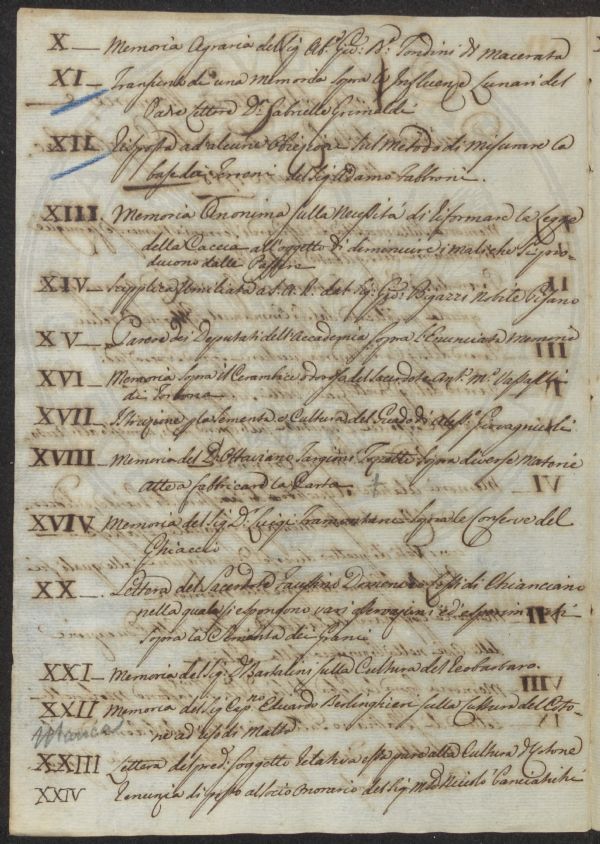 X — Memoria Agraria del Sig. Ab.e Gio: B.a Tondini di Macerata
XI — Transunto di una memoria sopra le Influenze Lunari del
Padre Lettore D. Gabrielle Grimaldi
XII. Risposta ad alcune Obiezioni sul Metodo di misurare la
base dei Terreni del Sig. Adamo Fabbroni.
XIII. Memoria Anonima sulla Necessità di riformare la legge
della Caccia all'oggetto di diminuire i mali che si pro-
ducono dalle Passere
XIV — Supplica umiliata a S. A. R. dal Sig. Gio: Bigazzi Nobile Pisano
XV — Parere dei Deputati dell'Accademia sopra l'Enunciata Memoria
XVI — Memoria sopra il Cerambice odoroso del Sacerdote Ant.o M.a Vassalli
di Tortona.
XVII — Istruzione p la Sementa e Cultura del di
XVIII — Memoria del D. Ottaviano Targioni Tozzetti sopra diverse Materie
atte a fabbricare la Carta
XVIV Memoria del Sig. D. Luigi Tramontani sopra le Conserve del
Ghiaccio
XX — Lettera del Sacerdote Faustino Domenico di Chianciano
nella quale si espongono varj osservazioni ed esperimenti
sopra la Sementa dei Grani
XXI — Memoria del Sig. D. Bartalini sulla Cultura del Reobarbaro.
XXII Memoria del Sig. Cap.no Eduardo Berlinghieri sulla Cultura del Coto-
ne ad uso di Malta
Manca
XXIII Lettera del pred.o Soggetto relativa essa pure alla Cultura d. Cotone
XXIV Renunzia di posto al Socio Onorario del Sig. M. Niccolò Panciatichi